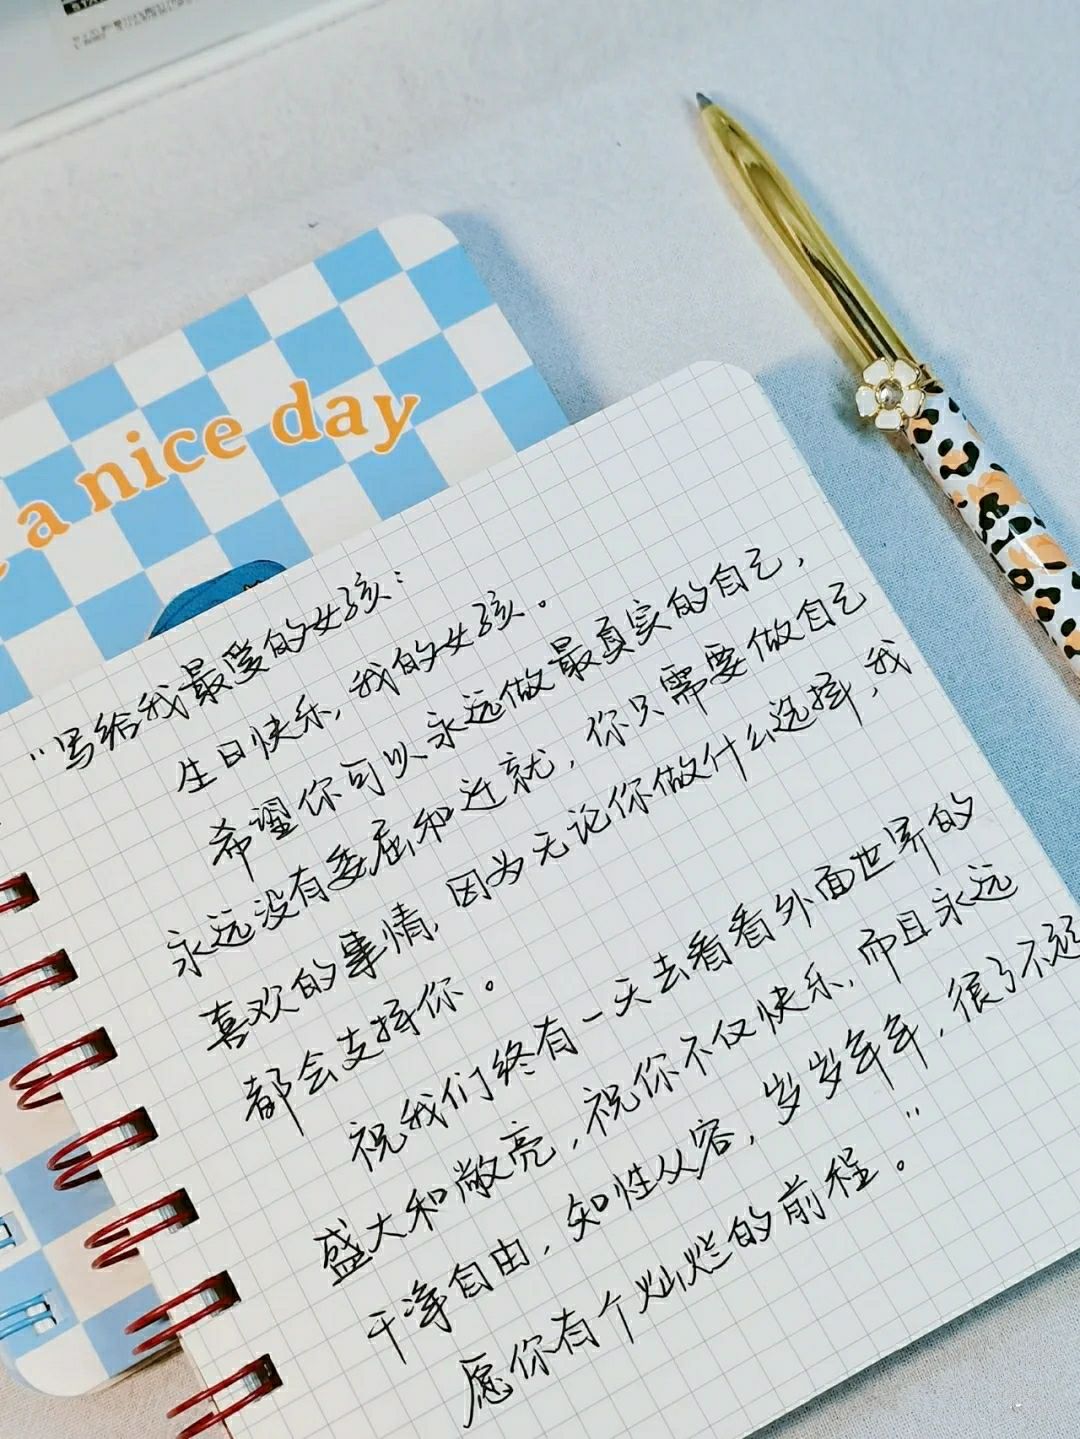 a nice day
“写给我最爱的女孩：
生日快乐，我的女孩。
希望你可以永远做最真实的自己，
永远没有委屈和迁就，你只需要做自己
喜欢的事情，因为无论你做什么选择，我
都会支持你。
祝我们终有一天去看看外面世界的
盛大和敞亮，祝你不仅快乐，而且永远
干净自由，知性从容，岁岁年年，很了不起
愿你有个灿烂的前程。”